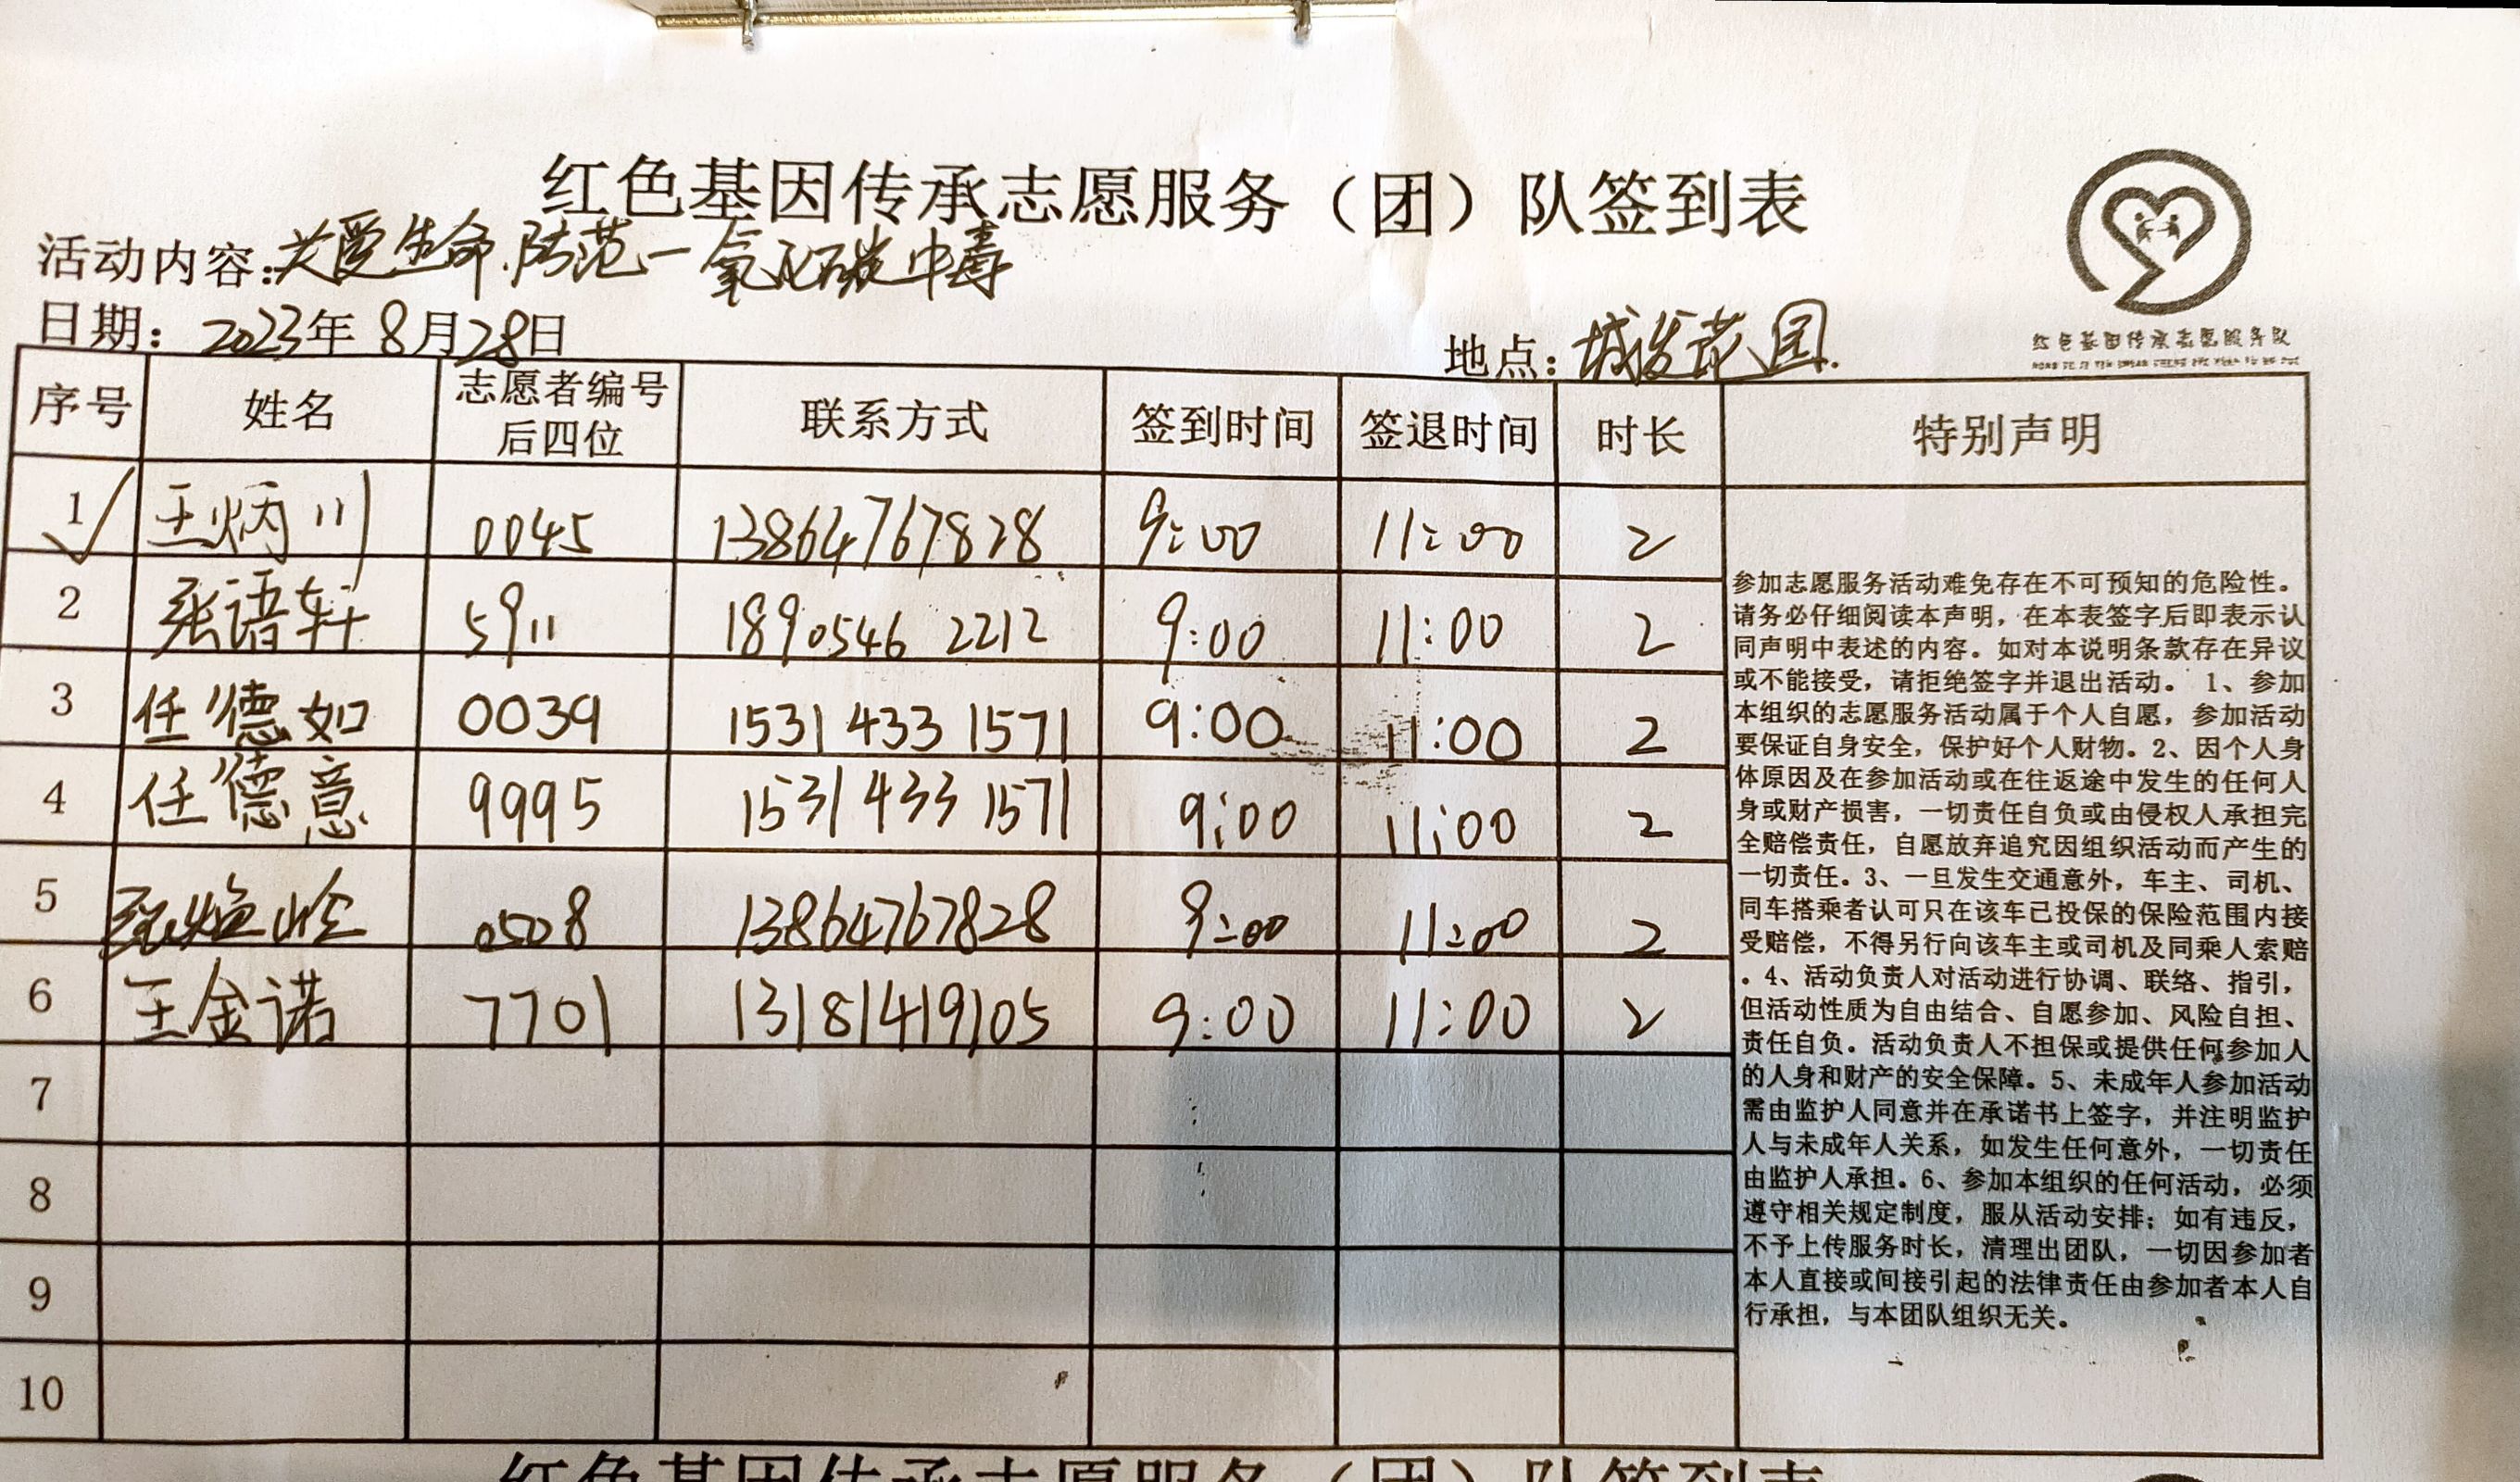 红色基因传承志愿服务（团）队签到表
活动内容：关爱生命.防范一氧化碳中毒
日期：2023年 8月28日
地点：城发花园.
红色基因传承志愿服务队
序号 姓名 志愿者编号后四位 联系方式 签到时间 签退时间 时长 特别声明
1 王炳川 0045 13864767828 9:00 11:00 2
2 张语轩 5911 18905462212 9:00 11:00 2
3 任德如 0039 15314331571 9:00 11:00 2
4 任德意 9995 15314331571 9:00 11:00 2
5 0508 13864767828 9:00 11:00 2
6 王金诺 7701 13181419105 9:00 11:00 2
7
8
9
10
参加志愿服务活动难免存在不可预知的危险性。
请务必仔细阅读本声明，在本表签字后即表示认
同声明中表述的内容。如对本说明条款存在异议
或不能接受，请拒绝签字并退出活动。 1、参加
本组织的志愿服务活动属于个人自愿，参加活动
要保证自身安全，保护好个人财物。2、因个人身
体原因及在参加活动或在往返途中发生的任何人
身或财产损害，一切责任自负或由侵权人承担完
全赔偿责任，自愿放弃追究因组织活动而产生的
一切责任。3、一旦发生交通意外，车主、司机、
同车搭乘者认可只在该车已投保的保险范围内接
受赔偿，不得另行向该车主或司机及同乘人索赔
。4、活动负责人对活动进行协调、联络、指引，
但活动性质为自由结合、自愿参加、风险自担、
责任自负。活动负责人不担保或提供任何参加人
的人身和财产的安全保障。5、未成年人参加活动
需由监护人同意并在承诺书上签字，并注明监护
人与未成年人关系，如发生任何意外，一切责任
由监护人承担。6、参加本组织的任何活动，必须
遵守相关规定制度，服从活动安排；如有违反，
不予上传服务时长，清理出团队，一切因参加者
本人直接或间接引起的法律责任由参加者本人自
行承担，与本团队组织无关。
红色基因传承志愿服务（团）队签到表